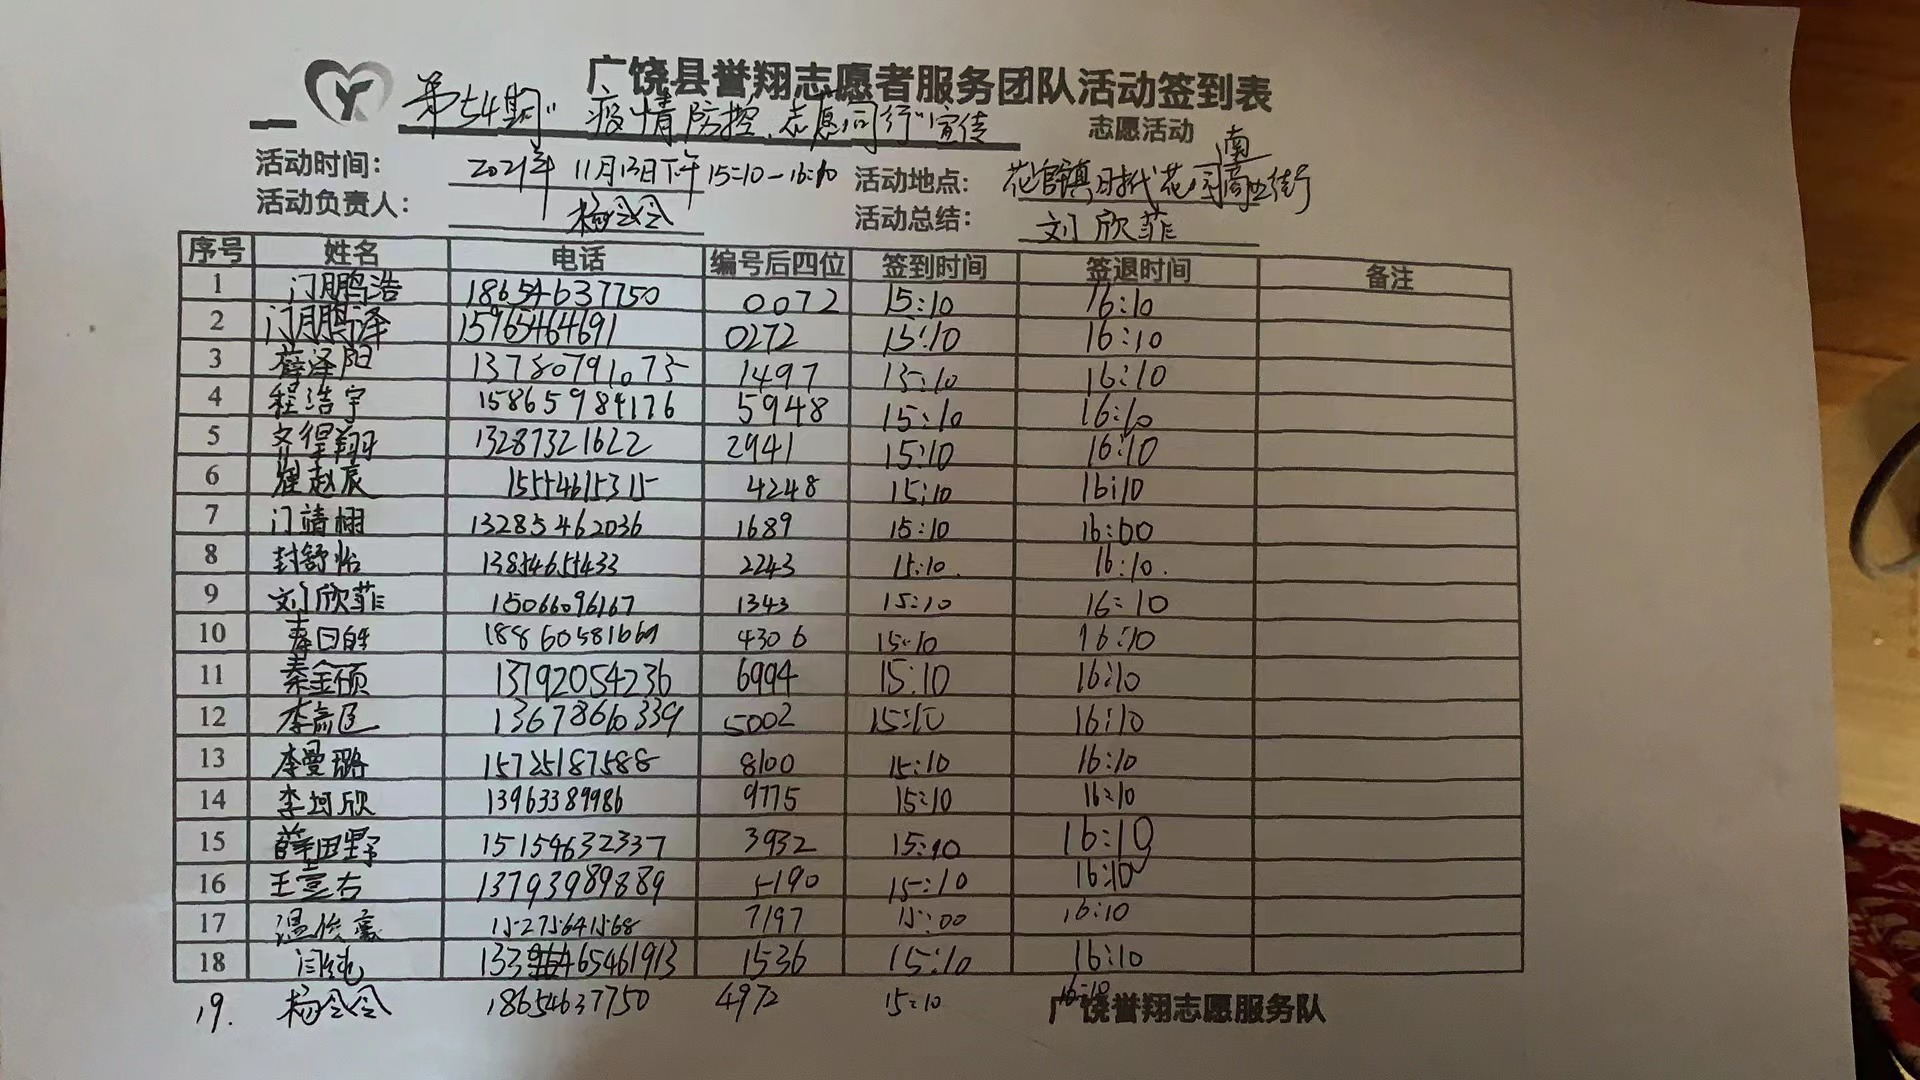 广饶县誉翔志愿者服务团队活动签到表
第54期"疫情防控,志愿同行"宣传 志愿活动
活动时间: 2021年11月13日下午15:10-16:10 活动地点: 花官镇时代花园南商业街
活动负责人: 杨令令 活动总结: 刘欣菲
序号 姓名 电话 编号后四位 签到时间 签退时间 备注
1 门鹏浩 18654637750 0072 15:10 16:10
2 门鹏泽 15965464691 0272 15:10 16:10
3 薛泽阳 13780791073 1497 15:10 16:10
4 程浩宇 15865984176 5948 15:10 16:10
5 13287321622 2941 15:10 16:10
6 翟赵辰 15554615315 4248 15:10 16:10
7 门靖栩 13285462036 1689 15:10 16:00
8 封舒怡 13854655433 2243 15:10. 16:10.
9 刘欣菲 15066096167 1343 15:10 16:10
10 4306 15:10 16:10
11 秦金硕 13792054236 6994 15:10 16:10
12 13678660339 5002 15:10 16:10
13 李曼璐 15725187588 8100 15:10 16:10
14 李珂欣 13963389986 9775 15:10 16:10
15 薛田野 15154632337 3932 15:10 16:10
16 王壹右 13793989889 5190 15:10 16:10
17 温俊豪 15275641568 7197 15:00 16:10
18 闫纯 1536 15:10 16:10
19. 杨令令 18654637750 4972 15:10 16:10
广饶誉翔志愿服务队